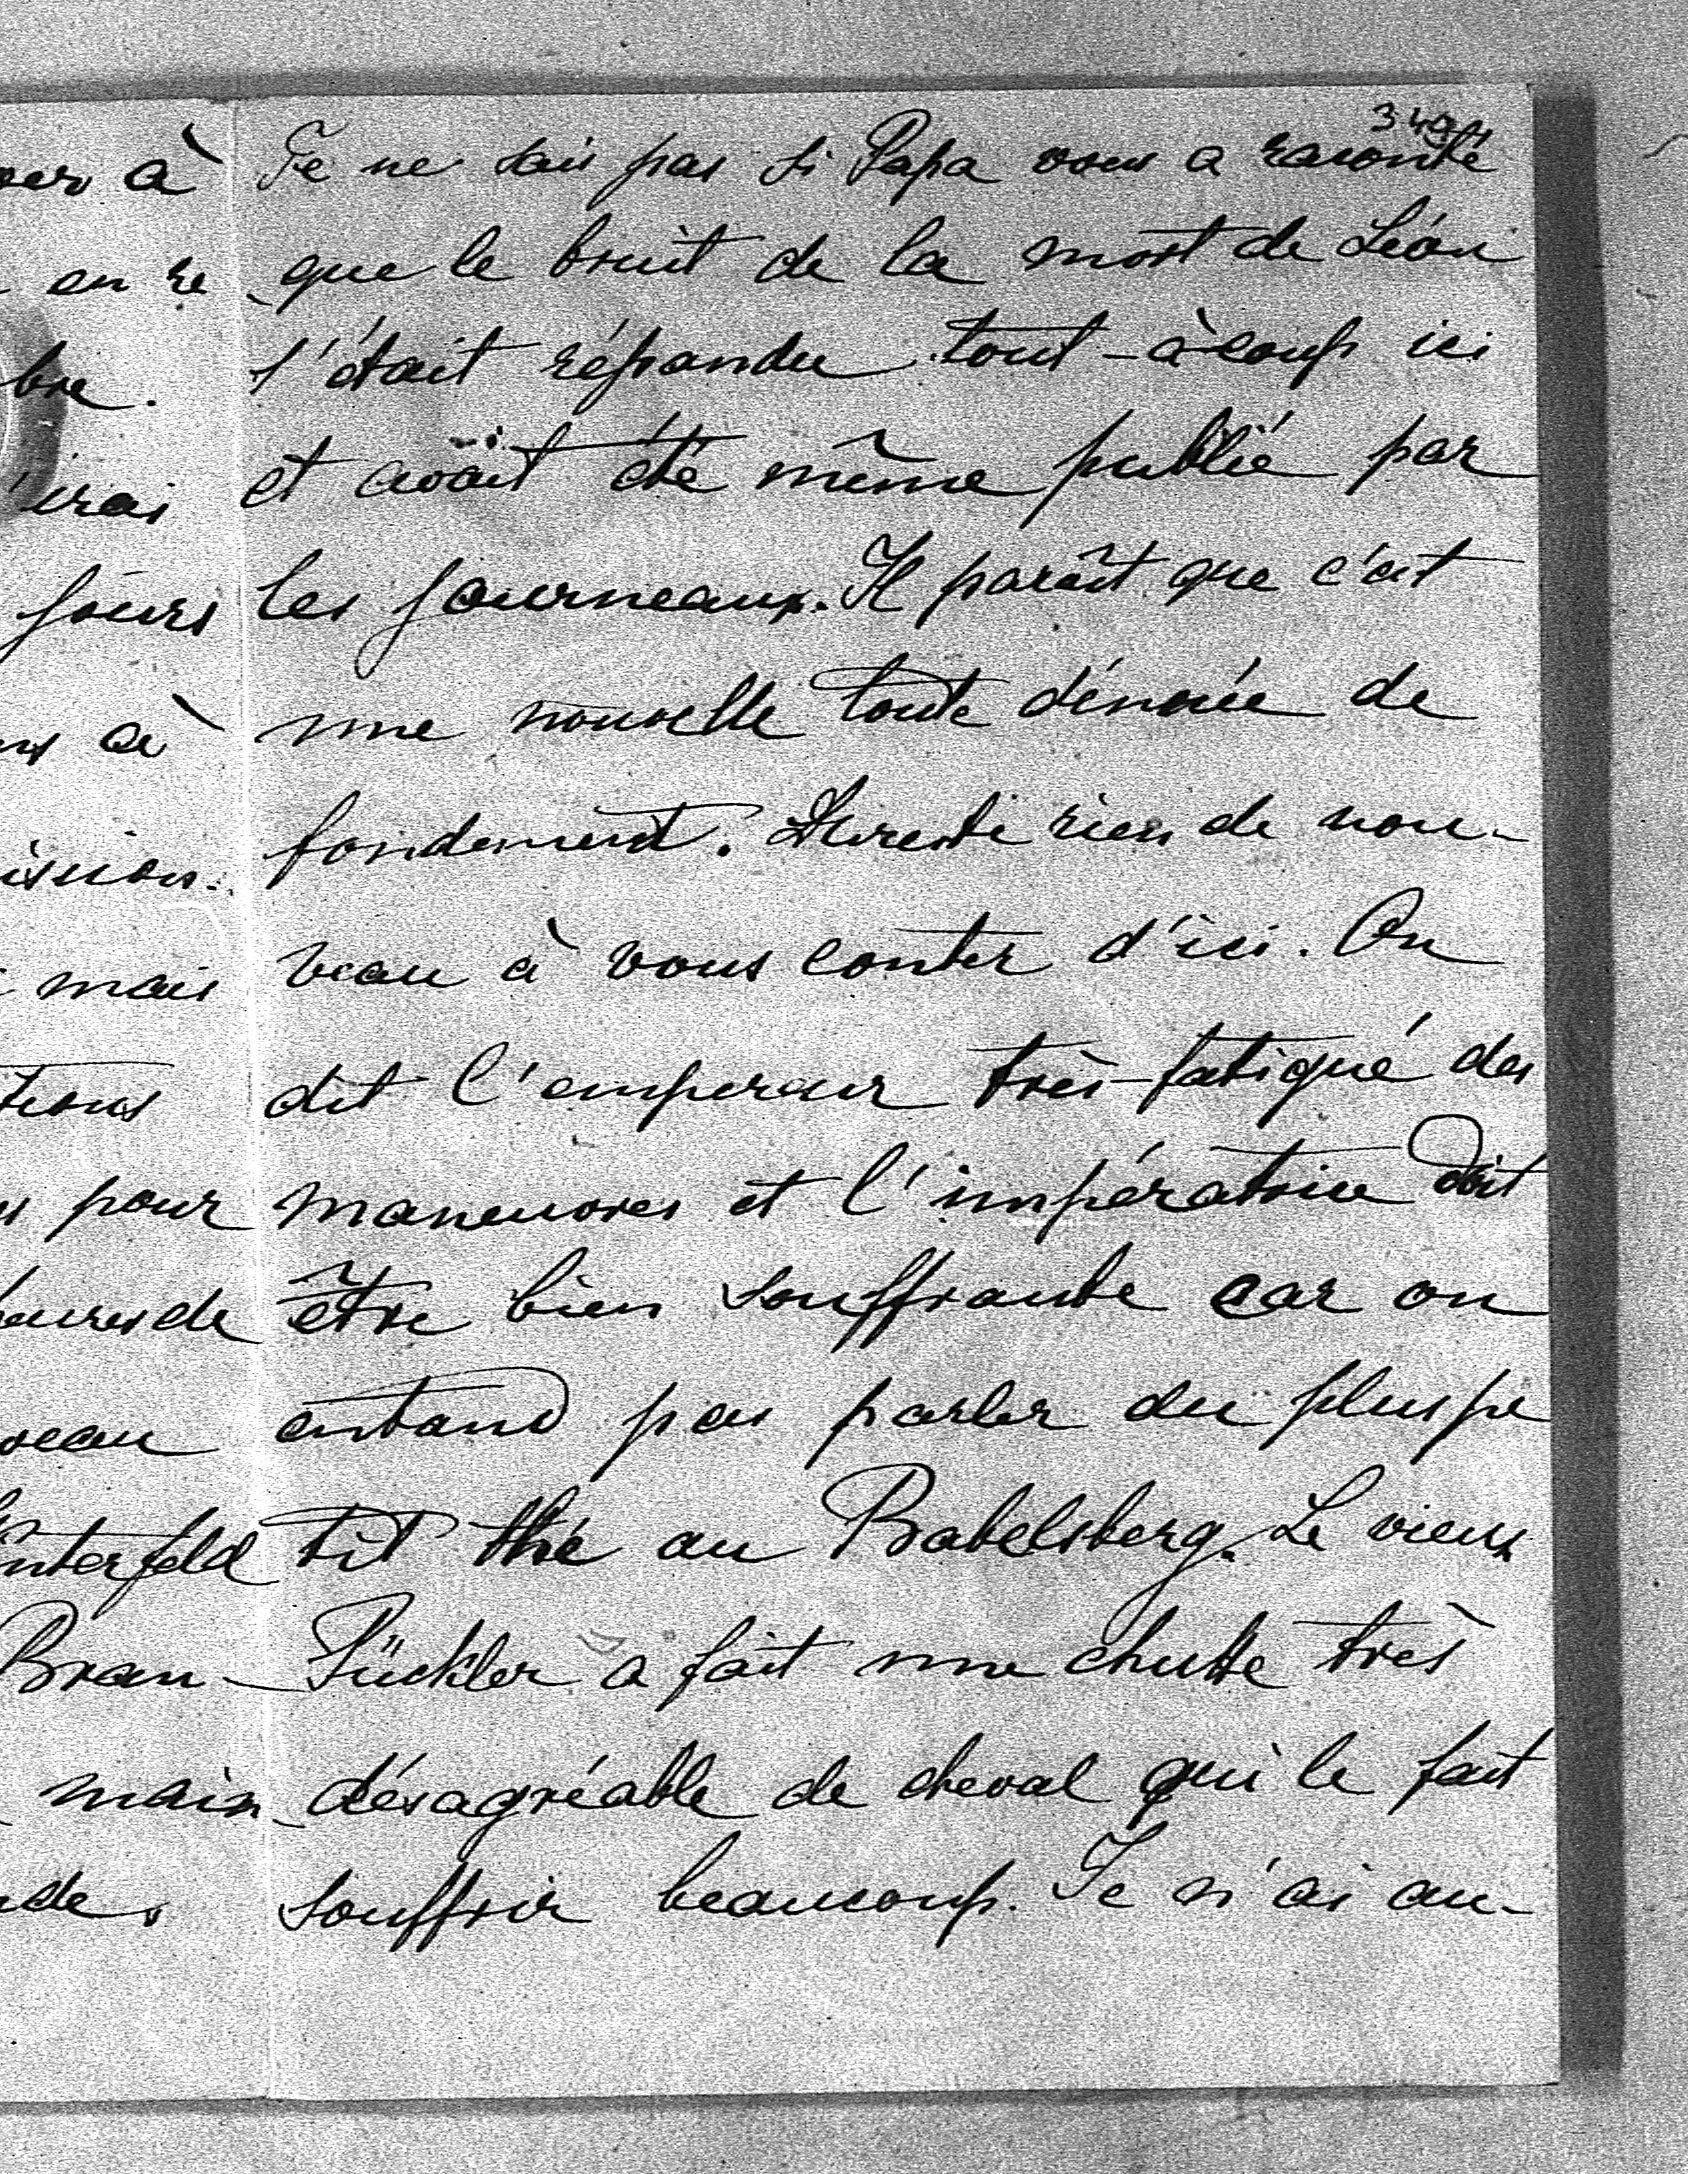 349
Je ne sais pas si Papa vous a raconté
que le bruit de la mort de Léon
s'était répandu tout-à-coup ici
et avait été même publié par
les journeaux. Il parait que c'est
une nouvelle toute dénuée de
fondement. Dureste rien de nou-
veau à vous conter d'ici. On
dit l'empereur très-fatigué des
maneuvres et l'impératrice doit
être bien souffrante car on
entand pas parler du plus pe
tit thé au Babelsberg. Le vieux
Pückler a fait une chutte très
désagréable de cheval qui le fait
souffrir beaucoup. Je n'ai au-
à
en re
bre.
irai
jours
à
mais
tions
pour
de
veau
nterfeld
Bran-
main